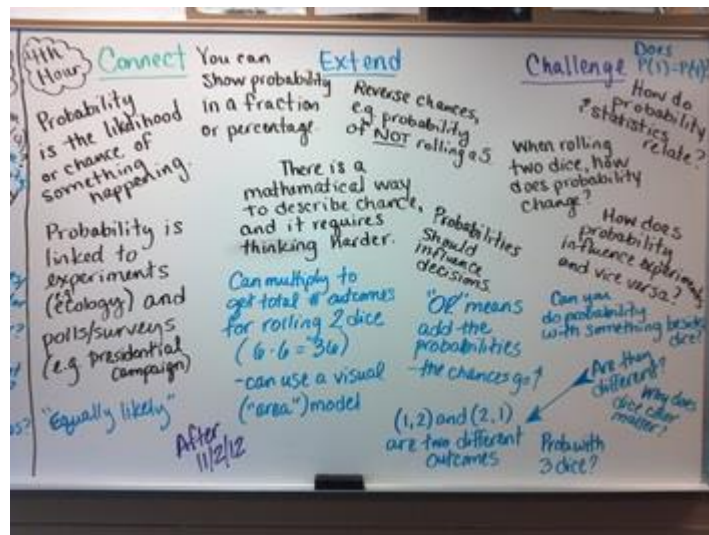 4th
Hour
Connect
Probability
is the liklihood
or chance of
something
happening.
Probability is
linked to
experiments
(ecology) and
polls/surveys
(e.g presidential
campaign)
"Equally likely"
You can
Show probability
in a fraction
or percentage.
Extend
Reverse chances,
e.g. probability
of NOT rolling a 5
There is a
mathematical way
to describe chance,
and it requires
thinking harder.
Probabilities
should
influence
decisions.
Can multiply to
get total # outcomes
for rolling 2 dice
(6·6=36)
-can use a visual
("area") model
"OR" means
add the
probabilities
-the chances go ↑
(1,2) and (2,1)
are two different
outcomes
After
11/2/12
Challenge
Does
How do
probability
statistics
relate?
When rolling
two dice, how
does probability
change?
How does
probability
influence experiments
and vice versa?
Can you
do probability
with something besides
dice?
Are they
different?
Why does
dice color
matter?
Prob. with
3 dice?